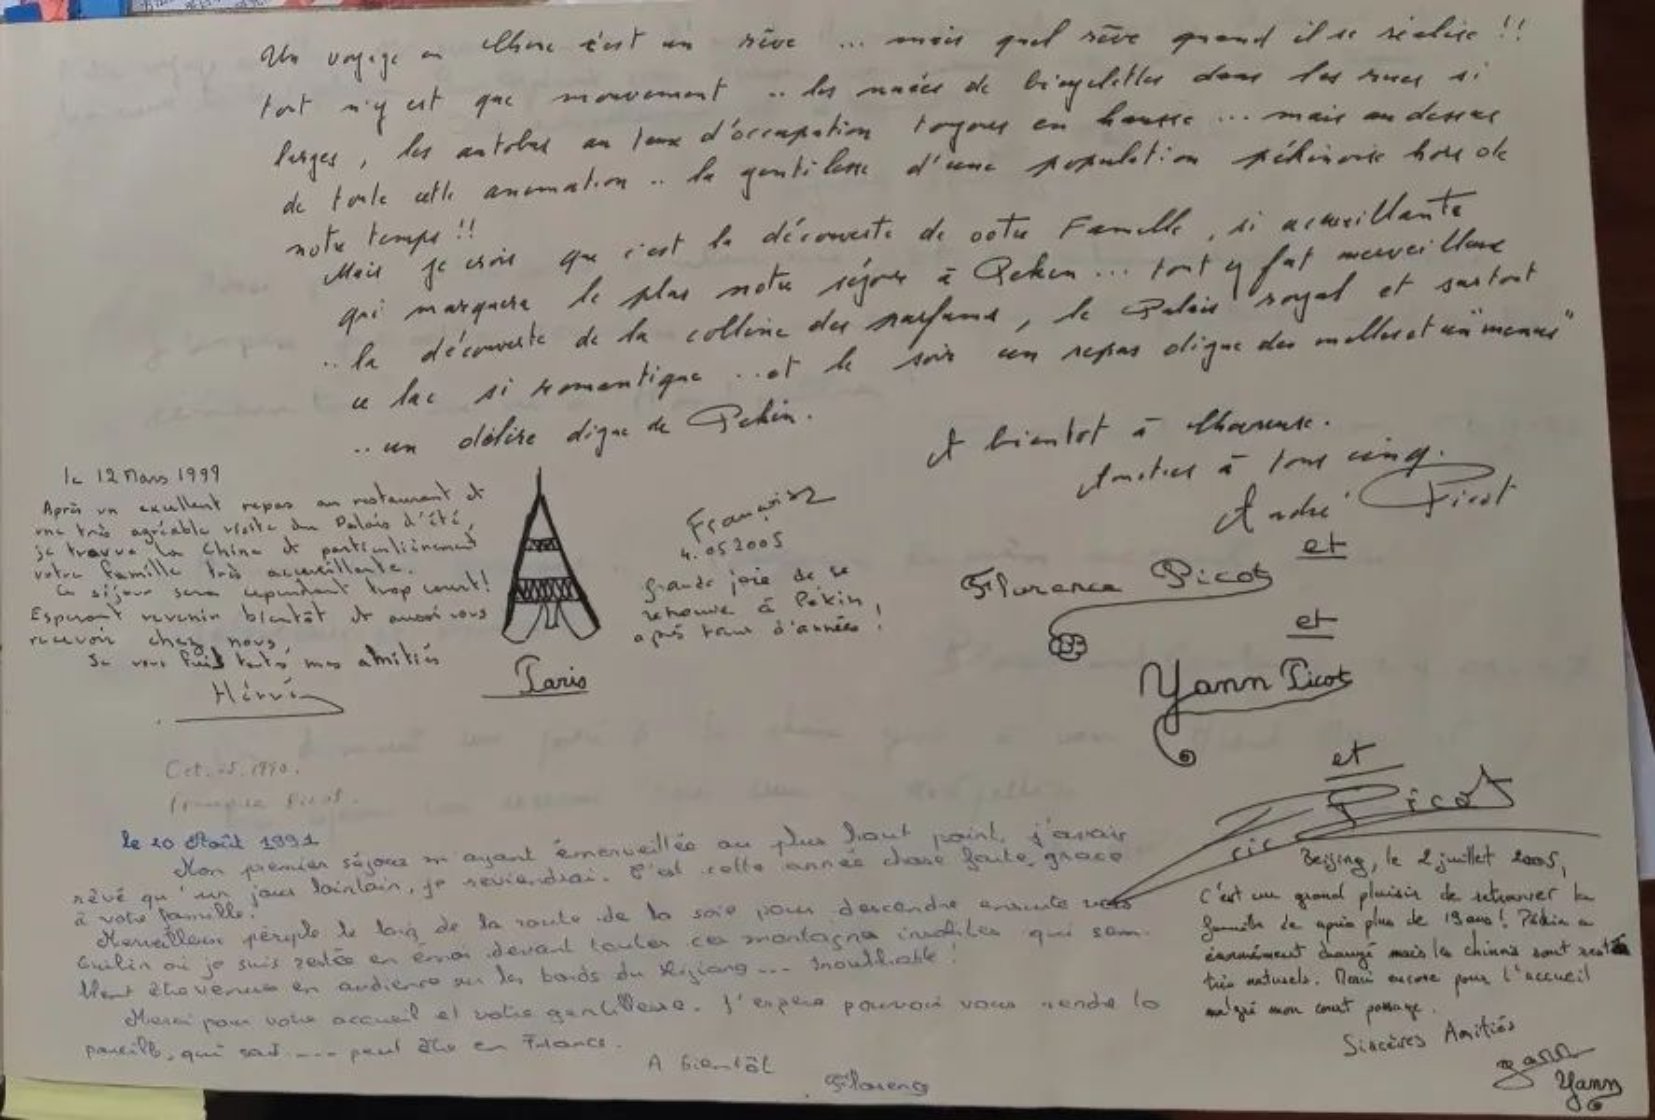 Un voyage en Chine c'est un rêve ... mais quel rêve quand il se réalise !!
tout n'y est que mouvement .. les nuées de bicyclettes dans les rues si
larges, les autobus au taux d'occupation toujours en hausse ... mais au dessus
de toute cette animation .. la gentillesse d'une population pékinoise hors de
notre temps !!
Mais je crois que c'est la découverte de votre Famille, si accueillante
qui marquera le plus notre séjour à Pekin ... tout y fut merveilleux
.. la découverte de la colline des parfums, le Palais royal et surtout
ce lac si romantique ... et le soir un repas digne des et un "menus"
.. un délire digne de Pekin.
A bientot à
Amitiés à tous cinq.
André Picot
et
Florence Picot
et
Yann Picot
et
Eric Picot
le 12 Mars 1999
Après un excellent repas au restaurant et
une très agréable visite du Palais d'été,
je trouve la Chine et particulièrement
votre famille très accueillante.
Ce séjour sera cependant trop court!
Esperant revenir bientôt et aussi vous
recevoir chez nous,
Je vous fais toutes mes amitiés
Hervé
Paris
Françoise
4.05 2005
Grande joie de se
retrouver à Pékin
après tant d'années !
Oct. 05. 1990.
Françoise Picot.
le 10 Août 1991
Mon premier séjour m'ayant émerveillée au plus haut point, j'avais
rêvé qu'un jour lointain, je reviendrai. C'est cette année chose faite, grace
à votre famille.
Merveilleux périple le long de la route de la soie pour descendre ensuite vers
Guilin où je suis restée en émoi devant toutes ces montagnes insolites qui sem-
blent être venues en audience sur les bords du Lijiang ... Inoubliable !
Merci pour votre accueil et votre gentillesse. J'espère pouvoir vous rendre la
pareille, qui sait .... peut être en France.
A bientôt
Florence
Beijing, le 2 juillet 2005,
C'est un grand plaisir de retrouver la
famille après plus de 19 ans ! Pékin a
énormément changé mais les chinois sont restés
très naturels. Merci encore pour l'accueil
malgré mon court passage.
Sincères Amitiés
Yann
Yann